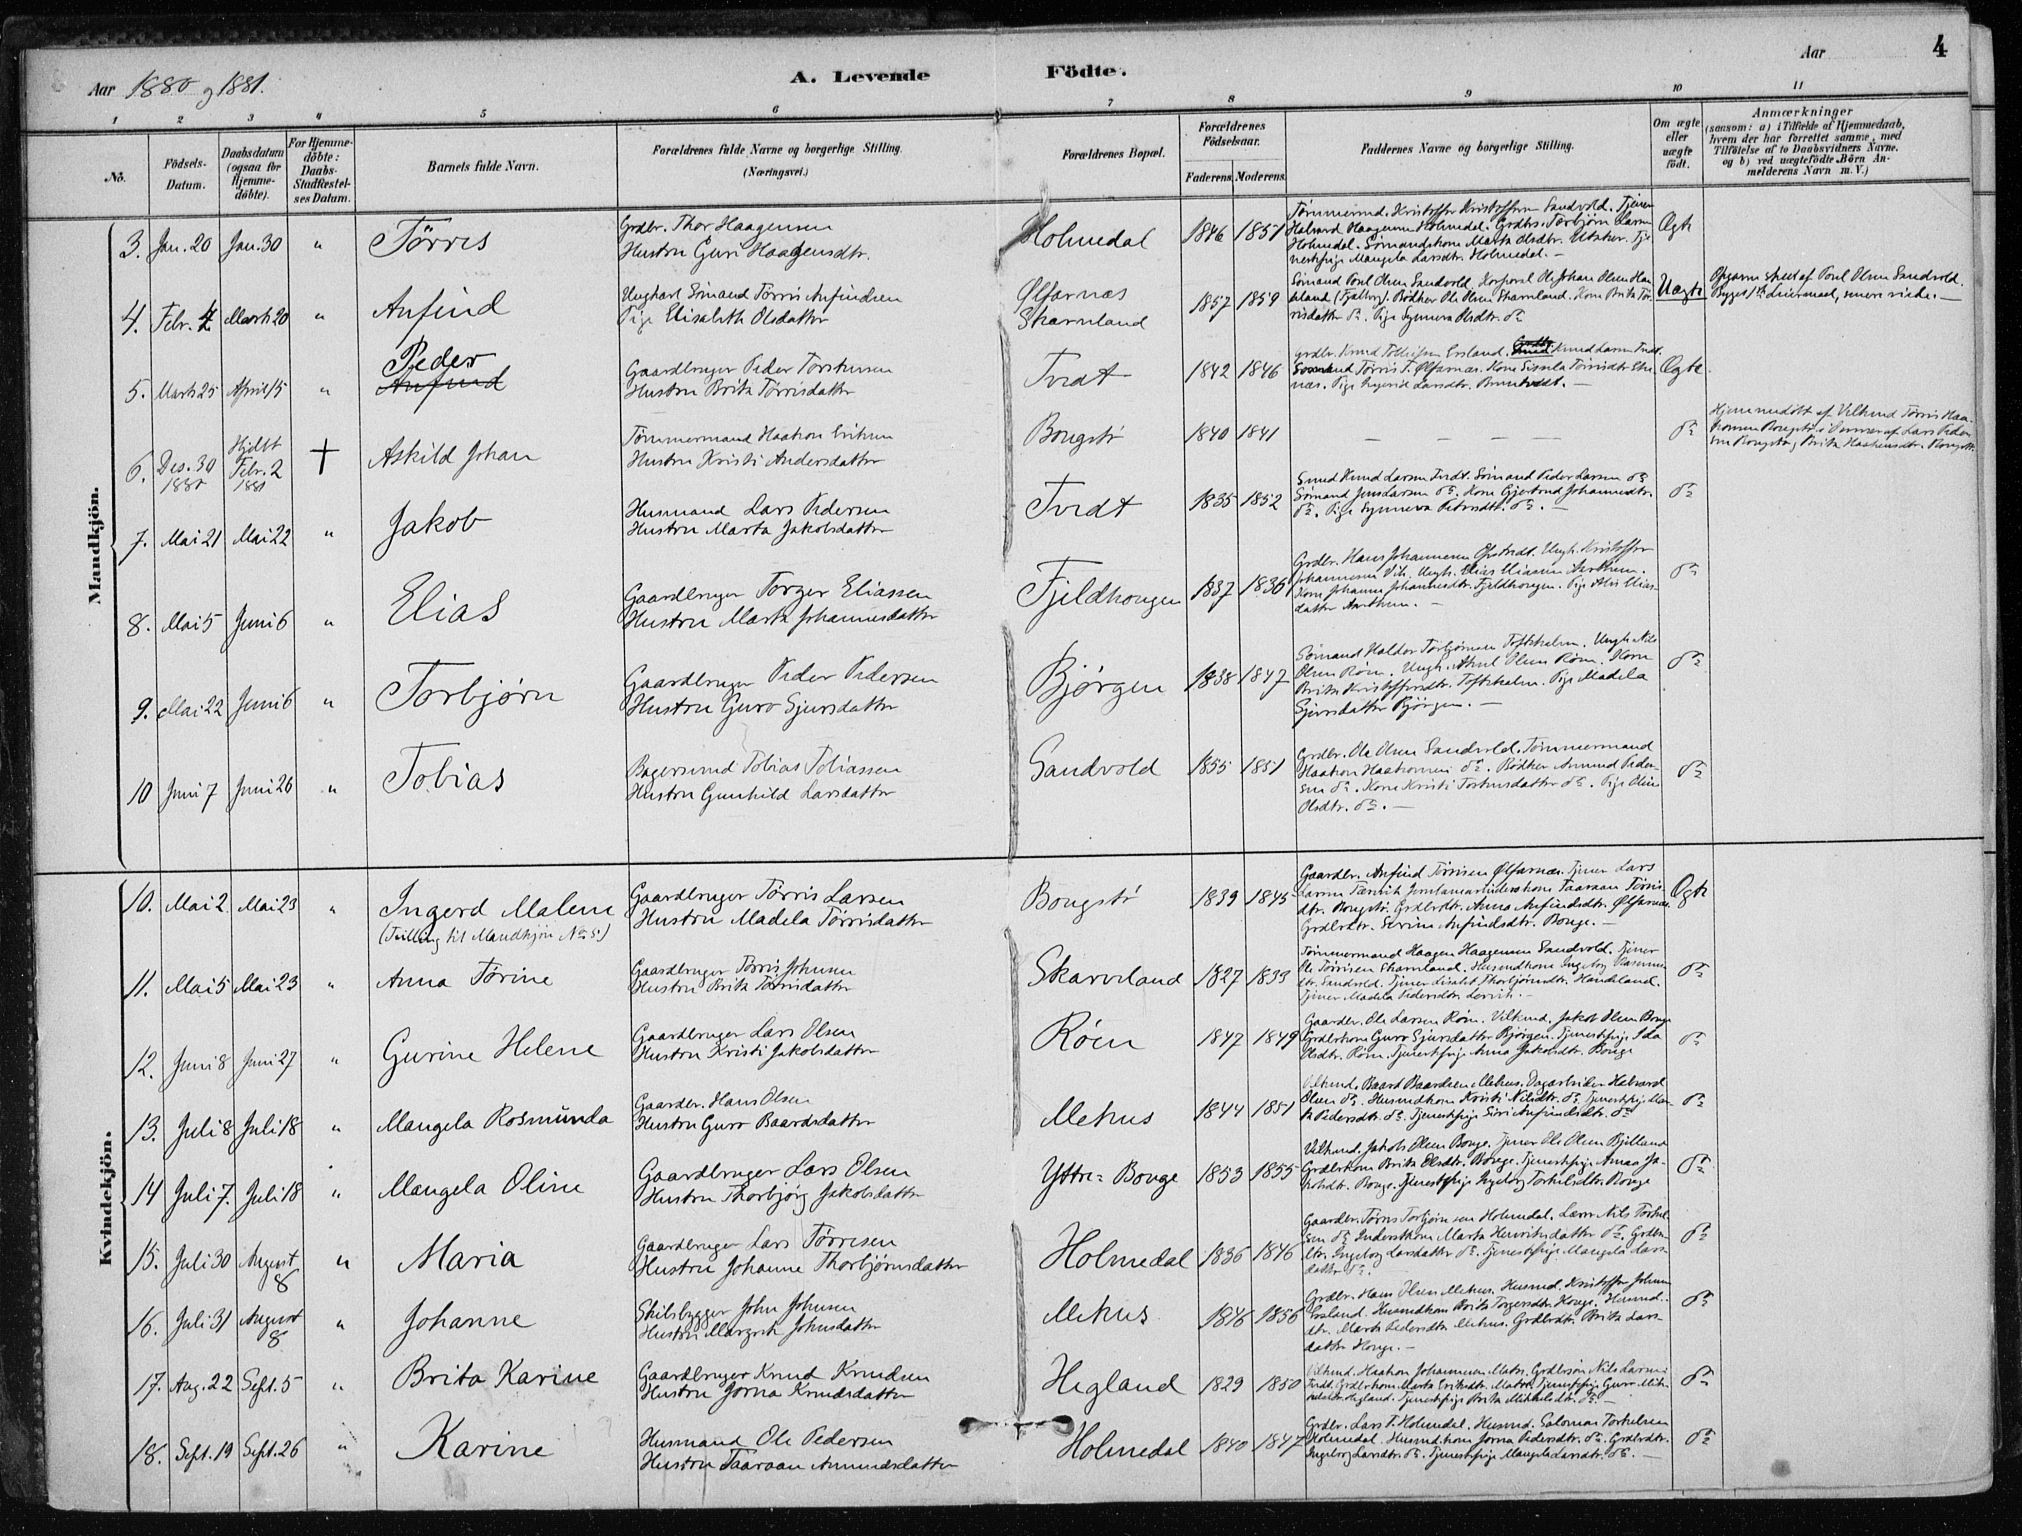 Aar 1880 og 1881.
A. Levende Födte.
Aar
4
1 2 3 4 5 6 7 8 9 10 11
No.
Födsels-Datum.
Daabsdatum (ogsaa for Hjemme-döbte).
For Hjemme-döbte: Daabs-Stadfæstel-ses Datum.
Barnets fulde Navn.
Forældrenes fulde Navne og borgerlige Stilling. (Næringsvei.)
Forældrenes Bopæl.
Forældrenes Födselsaar.
Faderens. Moderens.
Faddernes Navne og borgerlige Stilling.
Om ægte eller uægte födt.
Anmærkninger
(saasom: a) i Tilfælde af Hjemmedaab, hvem der har forrettet samme, med Tilföielse af to Daabsvidners Navne. og b) ved uægtefödte Börn An-melderens Navn m.V.)
Mandkjön.
3. Jan. 20 Jan. 30 " Tørris
Grdbr. Thor Haagensen
Hustru Guri Haagensdtr.
Holmedal 1846 1851
Tømmermd. Kristoffer Kristoffersen Sandvold. Tjener
Halvard Haagensen Holmedal. Grdbrs. Torbjørn Larsen
Holmedal. Sømandskone Marta Olsdtr. Utaker. Tje
nestpige Mangela Larsdtr. Holmedal. —
Ægte
4. Febr. 4 Marts 20 " Anfind
Ungkarl Sømand Tørris Anfindsen
Pige Elisabeth Olsdatter
Ølfarnæs
Skarveland
1857 1859
Sømand Poul Olsen Sandvold, Korporal Ole Johan Olsen Hau
keland (Fjelberg). Bødker Ole Olsen Skarveland. Kone Brita Tør
risdatter do. Pige Synneva Olsdtr. do
Uægte
Opgaven af Poul Olsen Sandvold.
5. Marts 25 April 15 " Peder
Anfind
Gaardbruger Peder Torstensen
Hustru Brita Tørrisdatter
Tvedt 1842 1846
Grdbr. Knud Tollefsen Ersland. Knud Larsen Tvedt.
Sømand Tørris T. Ølfarnæs. Kone Sissela Tørrisdtr
næs. Pige Ingerid Larsdtr. —
Ægte
6. Des. 30 1880 Hjdbt Febr. 2 1881 + Askild Johan
Tømmermand Haakon Eriksen
Hustru Kristi Andersdatter
Bongstø 1840 1841
— — — —
do
Hjemmedøbt af Velkmd Tørris Haa-
konsen Bongstø i Nærvær af Lars Peder
sen Bongstø og Brita Haakensdtr. Bongstø
7. Mai 21 Mai 22 " Jakob
Husmand Lars Pedersen
Hustru Marta Jakobsdatter
Tvedt 1835 1852
Smed Knud Larsen Tvedt. Sømand Peder Larsen do
Sømand Jens Larsen do. Kone Gjertrud Johannesdtr.
do. Pige Synneva Petersdtr. do. —
do
8. Mai 5 Juni 6 " Elias
Gaardbruger Torger Eliassen
Hustru Marta Johannesdatter
Fjeldhougen 1837 1836
Grdbr. Hans Johannesen Østvedt. Ungk. Kristoffer
Johannesen Vik. Ungk. Elias Eliassen Aarthun.
Kone Johanna Johannesdtr. Fjeldhougen. Pige Elias-
datter Aarthun. —
do
9. Mai 22 Juni 6 " Torbjørn
Gaardbruger Peder Pedersen
Hustru Guro Sjursdatter
Bjørgen 1838 1847
Sømand Haldor Torbjørnsen Toftekalven. Ungk. Nils
Olsen Røen. Ungk. Aksel Olsen Røen. Kone
Brita Kristoffersdtr. Toftekalven. Pige Madela
Sjursdatter Bjørgen. —
do
10 Juni 7 Juni 26 " Tobias
Bagersvend Tobias Tobiassen
Hustru Gunhild Larsdatter
Sandvold 1855 1851
Grdbr. Ole Olsen Sandvold. Tømmermand
Haakon Haakonsen do. Bødker Amund Peder-
sen do. Kone Kristi Torstensdatter do. Pige Eline
Olsdtr. do. —
do
Kvindekjön.
10. Mai 2 Mai 23 " Ingerd Malene
(Tvilling til Mandkjøn No 5.)
Gaardbruger Tørris Larsen
Hustru Madela Tørrisdatter
Bongstø 1839 1845
Gaardbr. Anfind Tørrisen Ølfarnæs. Tjener Lars
Larsen Tærvik Jernbanearbeiderkone Taaraan Tørris
dtr. Bongstø. Grdbrdtr. Anna Anfindsdtr. Ølfarnæs.
Grdbrdtr. Serine Anfindsdtr. Bouge. —
Ægte
11. Mai 5 Mai 23 " Anna Tørine
Gaardbruger Tørris Johnsen
Hustru Brita Tørrisdatter
Skarveland 1827 1833
Tømmermand Haagen Haagensen Sandvold. Tjener
Ole Tørrisen Skarveland. Husmdkone Ingeborg Rasmus
dtr. Sandvold. Tjener Lisabet Thorbjørnsdtr. Haukeland.
Tjener Madela Pedersdtr. Lervik. —
do
12. Juni 8 Juni 27 " Gurine Helene
Gaardbruger Lars Olsen
Hustru Kristi Jakobsdatter
Røen 1847 1849
Gaardbr. Ole Larsen Røen. Velkmd. Jakob Olsen Bouge
Grdbrkone Guro Sjursdatter Bjørgen. Tjenestpige Ida
Olsdtr. Røen. Tjenestpige Anna Jakobsdtr. Bouge
do
13. Juli 8 Juli 18 " Mangela Rosmunda
Gaardbr. Hans Olsen
Hustru Guro Baardsdatter
Mehus 1844 1851
Velkmd. Baard Baardsen Mehus. Dagarbeider Halvard
Olsen do. Husmdkone Kristi Nilsdtr. do. Tjenestpige Mar-
ta Pedersdtr. do. Tjenestpige Siri Anfindsdtr. do
do
14 Juli 7. Juli 18 " Mangela Oline
Gaardbruger Lars Olsen
Hustru Thorbjørg Jakobsdatter
Yttre- Bouge 1853 1855
Velkmd. Jakob Olsen Bouge. Tjener Ole Olsen Bjelland
Grdbrkone Brita Olsdtr. Bouge. Tjenestpige Anna Ja-
kobsdtr. Bouge. Tjenestpige Ingeborg Torkelsdtr. Bouge
do
15. Juli 30 August 8 " Maria
Gaardbruger Lars Tørresen
Hustru Johanne Thorbjørnsdatter
Holmedal 1836 1846
Gaardbr. Tørris Torbjørnsen Holmedal. Lærer Nils Torkel
sen do. Inderstkone Marta Henriksdatter do. Grdbr
dtr. Ingeborg Larsdatter do. Tjenestpige Mangela Lars
datter do.
do
16. Juli 31 August 8 " Johanne
Skibsbygger John Johnsen
Hustru Margrete Johnsdatter
Mehus 1846 1856
Grdbr. Hans Olsen Mehus. Husmd. Kristoffer Johnsen
Ersland. Husmdkone Brita Torgersdtr. Houge. Husmd.
dtr. Marta Pedersdtr. Mehus. Grdbrdtr. Brita Lars-
datter Houge. —
do
17. Aug. 22 Sept. 5 " Brita Karine
Gaardbruger Knud Knudsen
Hustru Jorna Knudsdatter
Hegland 1829 1850
Velkmd. Haakon Johannesen Matre. Grdbrsøn Nils Larsen
Tvedt. Grdbrkone Marta Eriksdtr. Matre. Tjenestpige Guro Mik-
kelsdtr Hegland. Tjenestpige Brita Mikkelsdtr. do. —
do
18. Sept. 19 Sept. 26 " Karine
Husmand Ole Pedersen
Hustru Taaraan Amundsdatter
Holmedal 1840 1847
Grdbr. Lars T. Holmedal. Husmd. Salomon Torkelsen
Holmedal. Husmdkone Jorna Pedersdtr. do. Grdbrdtr.
Ingeborg Larsdtr. do. Tjenestpige Mangela Larsdtr. do. —
do